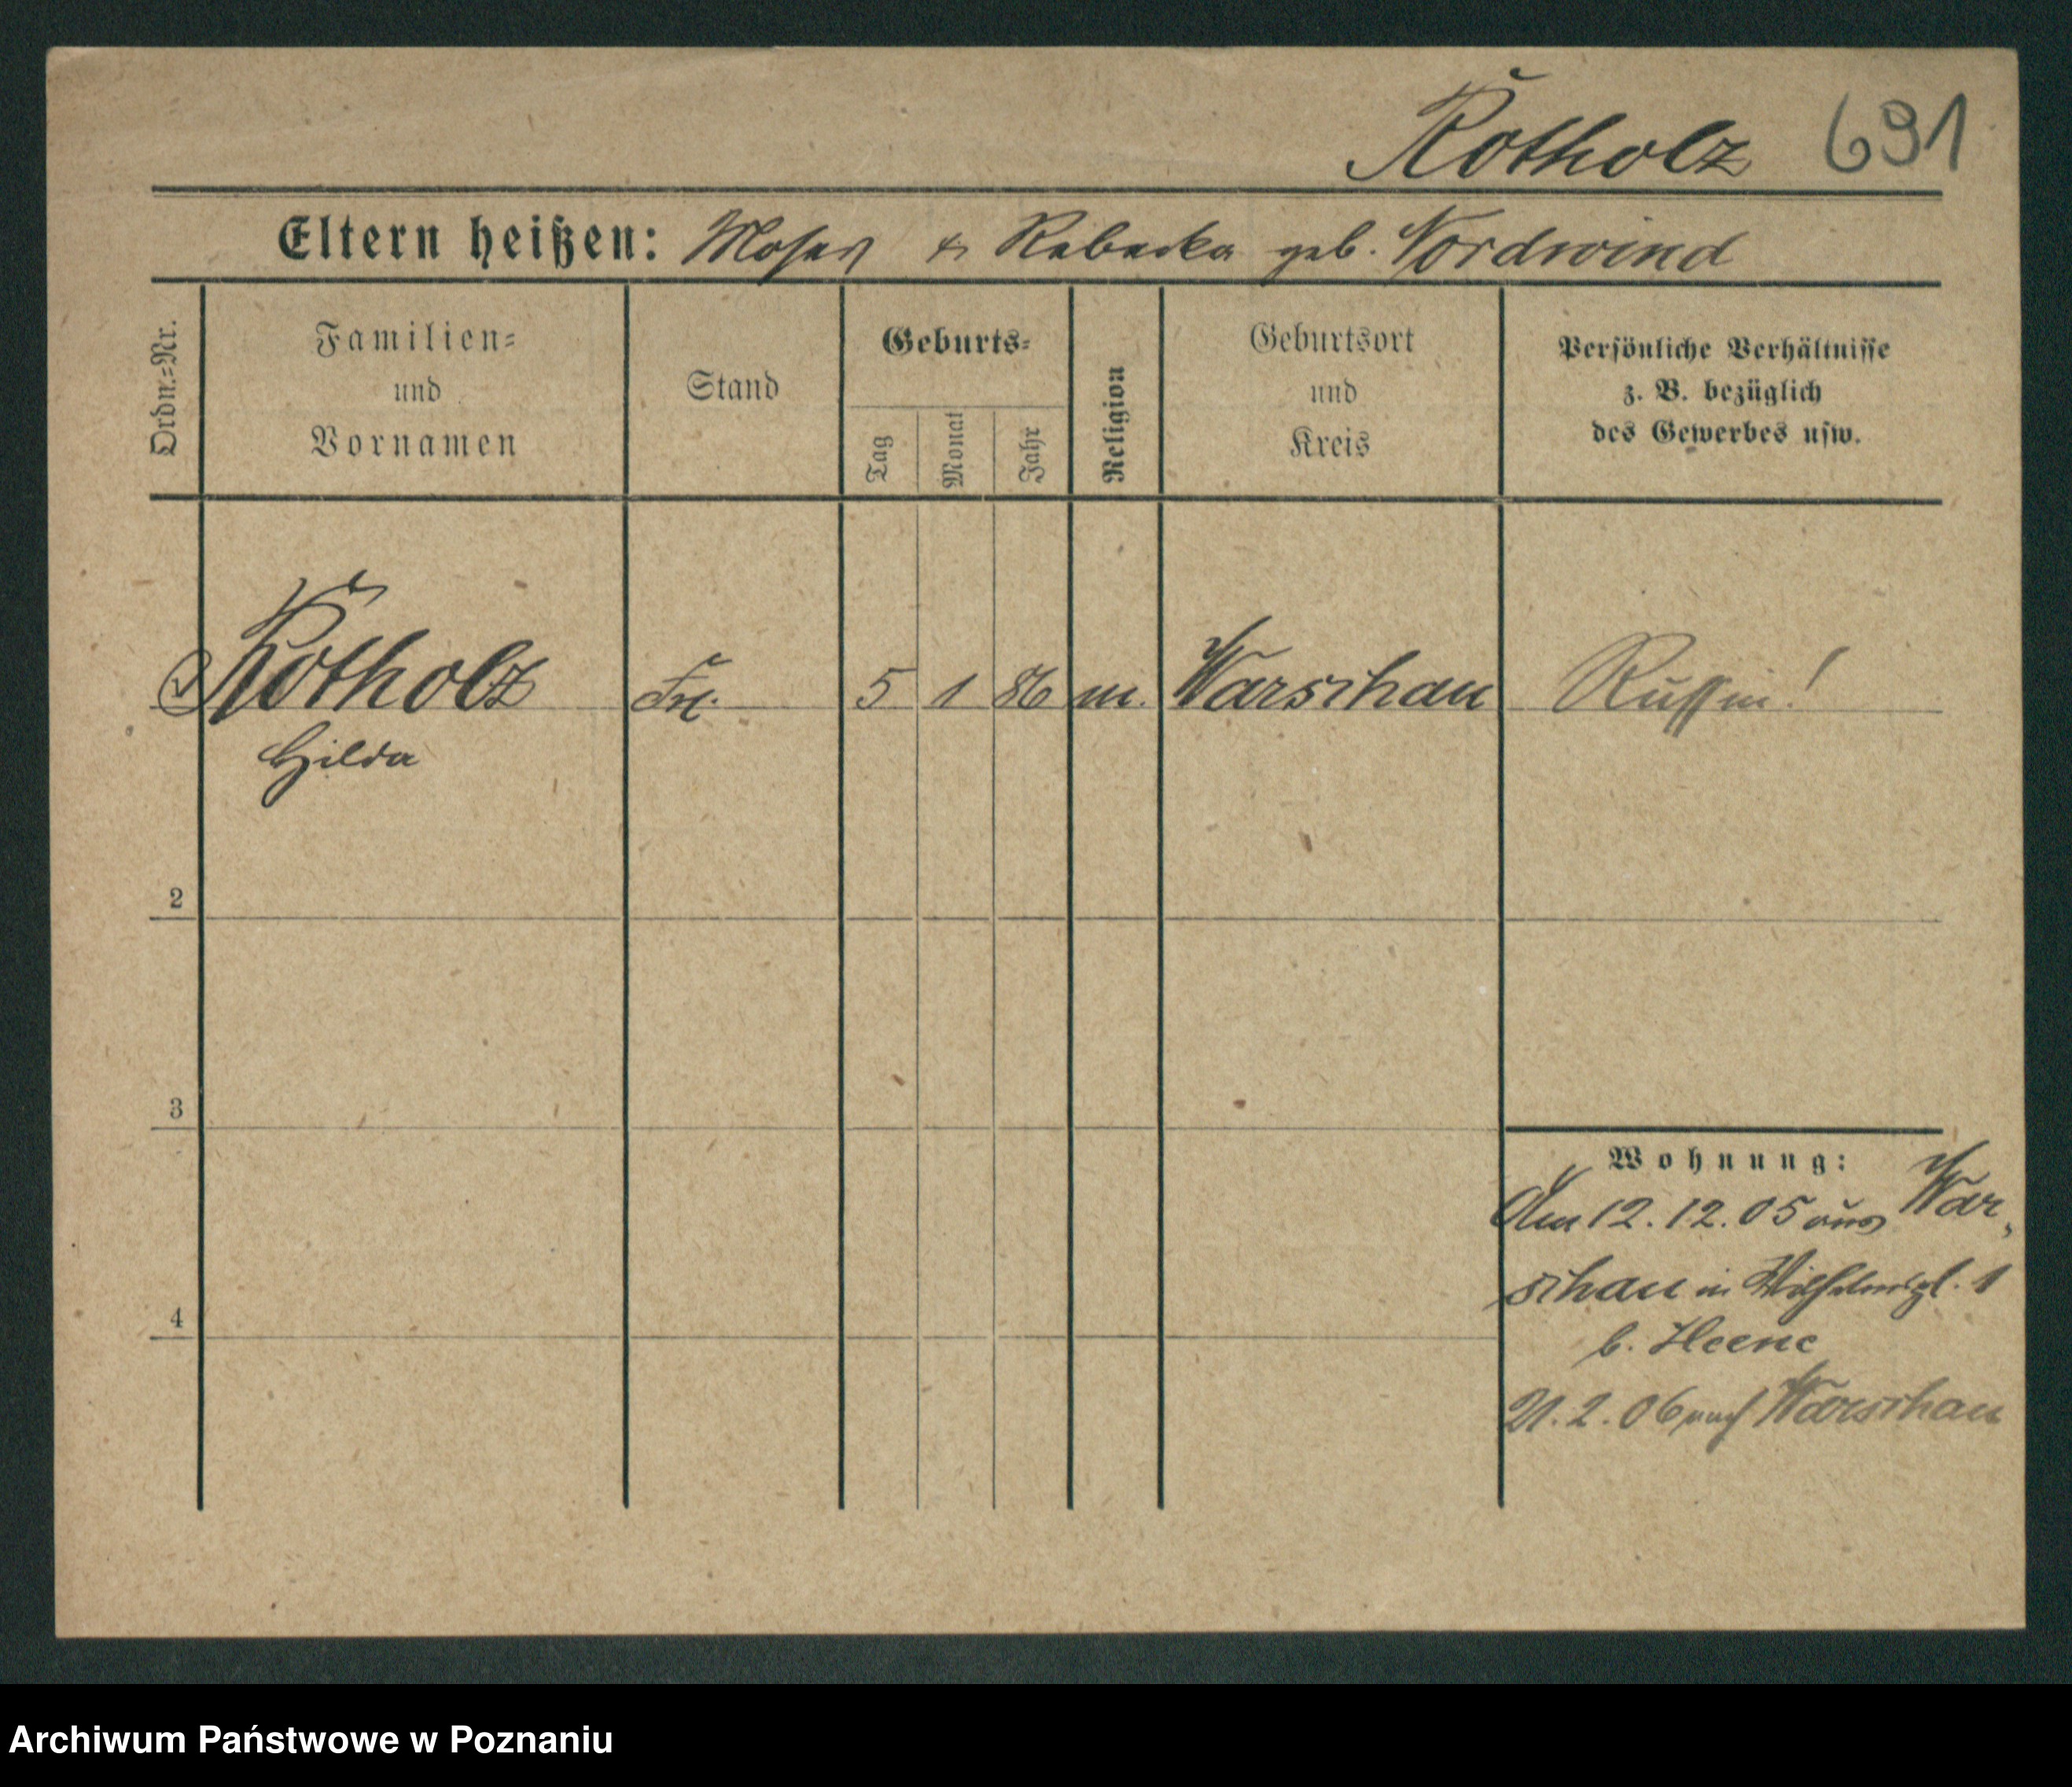 Rotholz 691
Eltern heißen: Moses & Rebecka geb. Nordwind
Ordn.-Nr.
Familien-
und
Vornamen
Stand
Geburts-
Tag
Monat
Jahr
Religion
Geburtsort
und
Kreis
Persönliche Verhältnisse
z. B. bezüglich
des Gewerbes usw.
Rotholz Frl. 5 1 86 m. Warschau Russin!
Hilda
2
3
4
Wohnung:
Am 12.12.05 aus War-
schau in Wilhelmspl. 1
b. Heene
21.2.06 nach Warschau
Archiwum Państwowe w Poznaniu